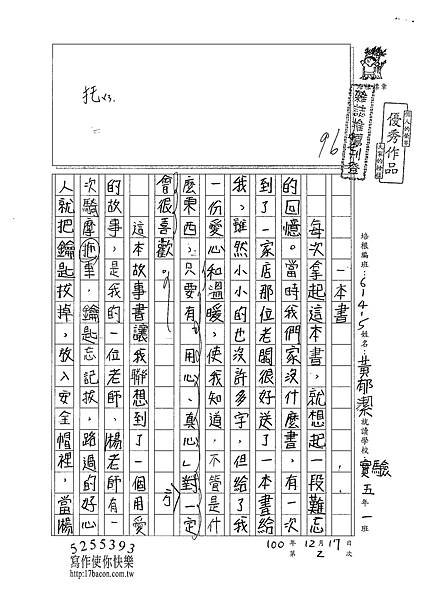 優秀作品
托x3.
96
培根編班：614-5 姓名：黃郁潔 就讀學校 實驗 五年一班
一本書
每次拿起這本書，就想起一段難忘
的回憶。當時我們家沒什麼書，有一次
到了一家店那位老闆很好送了一本書給
我，雖然小小的也沒許多字，但給了我
一份愛心和溫暖，使我知道，不管是什
麼東西，只要有「用心、真心」對方一定
會很喜歡。
這本故事書讓我聯想到了一個用愛
的故事，是我的一位老師，楊老師有一
次騎摩拖車，鑰匙忘記拔，路過的好心
人就把鑰匙拔掉，放入安全帽裡，當楊
100年12月17日
第2次
5255393
寫作使你快樂
http://17bacon.com.tw